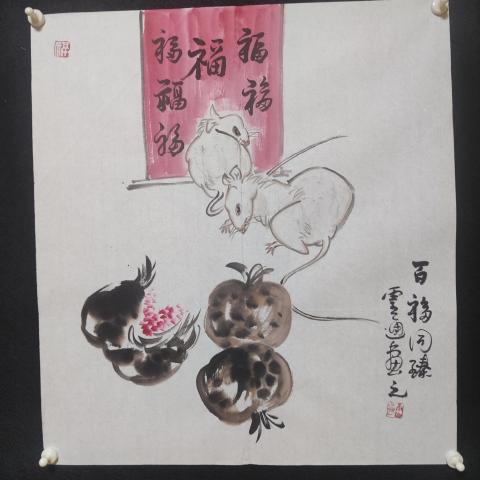 福福
福
福福福
百福同臻
雲画之